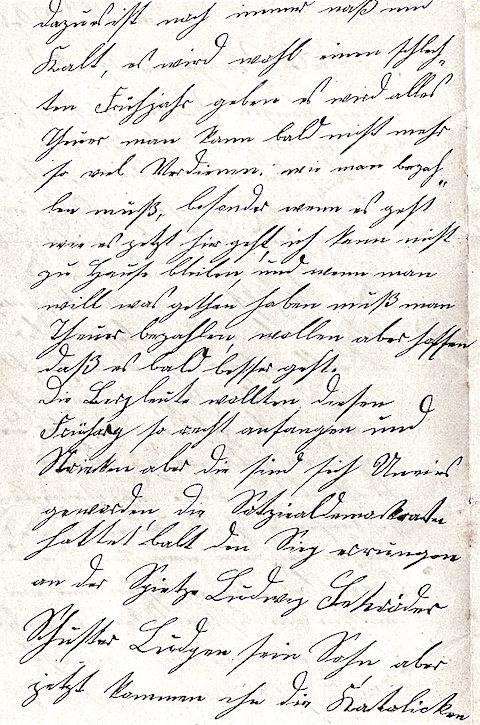 dazu es ist noch immer naß und
Kalt, es wird wohl einen schlech-
ten Frühjahr geben es wird alles
Theuer man kann bald nicht mehr
so viel Verdienen. wie man bezah-
len muß, besonder wenn es geht
wie es jetzt hir geht, ich kann nicht
zu Hause bleiben, und wenn man
will was gethan haben muß man
Theuer bezahlen, wollen aber hoffen
daß es bald besser geht.
Die Bergleute wollten diesen
Frühjarg so recht anfangen und
Striecken aber die sind sich Uneins
geworden die Sotzialdemokraten
hatten balt den Sieg errungen
an der Spietze Ludwig Schröder
Schuster Ludgen sein Sohn, aber
jetzt kommen ihr die Katolicken